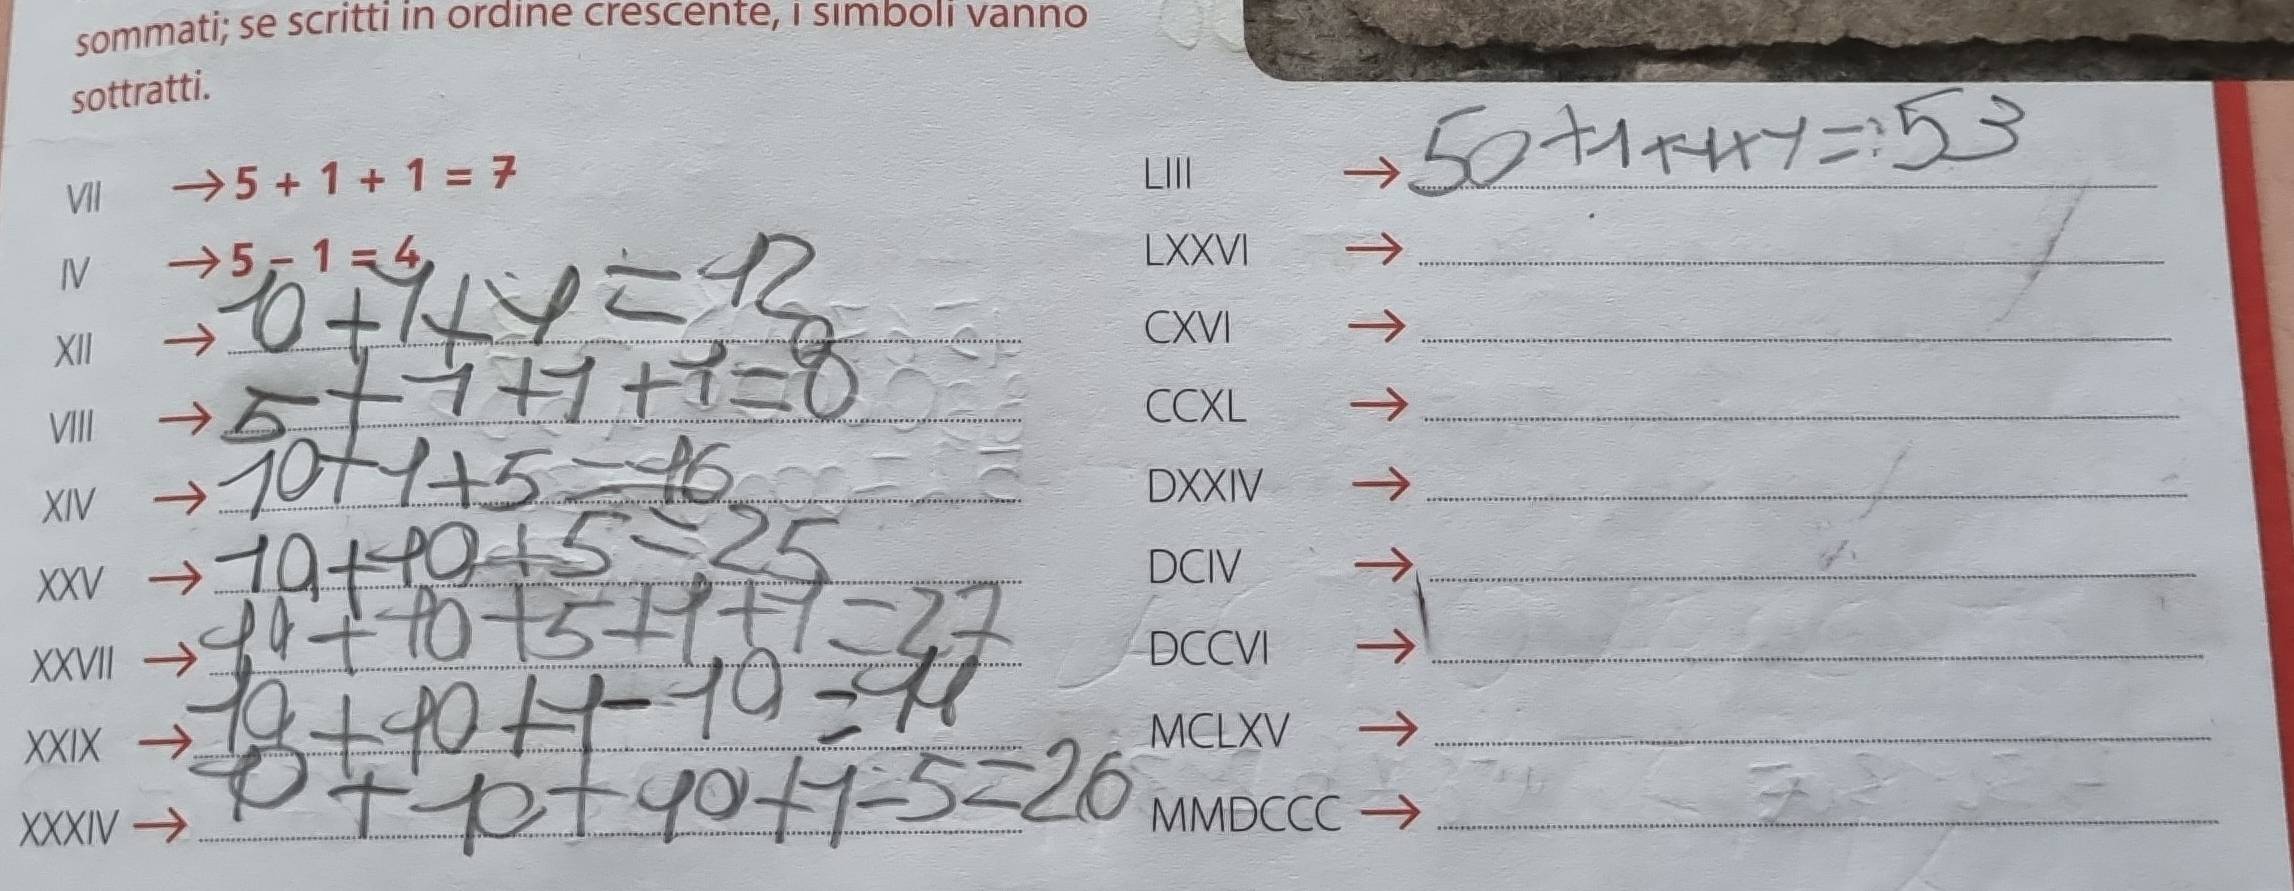 sommati; se scritti in ordine crescente, i simboli vanno
sottratti.
VII → 5 + 1 + 1 = 7
IV → 5 – 1 = 4
XII → 10+1+1=12
VIII → 5+1+1+1=8
XIV → 10+1+5=16
XXV → 10+10+5=25
XXVII → 10+10+5+1+1=27
XXIX → 10+10+1-10=11
XXXIV → 10+10+10+1-5=26
LIII → 50+1+1+1=53
LXXVI →
CXVI →
CCXL →
DXXIV →
DCIV →
DCCVI →
MCLXV →
MMDCCC →